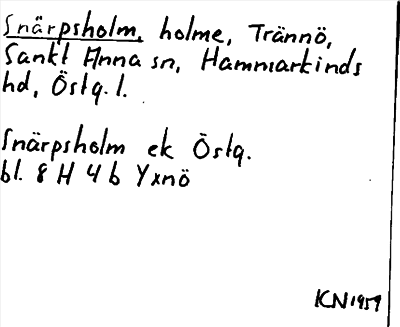 Snärpsholm, holme, Trännö,
Sankt Anna sn, Hammarkinds
hd, Östg. l.
Snärpsholm ek Östg.
bl. 8 H 4 b Yxnö
KN 1959